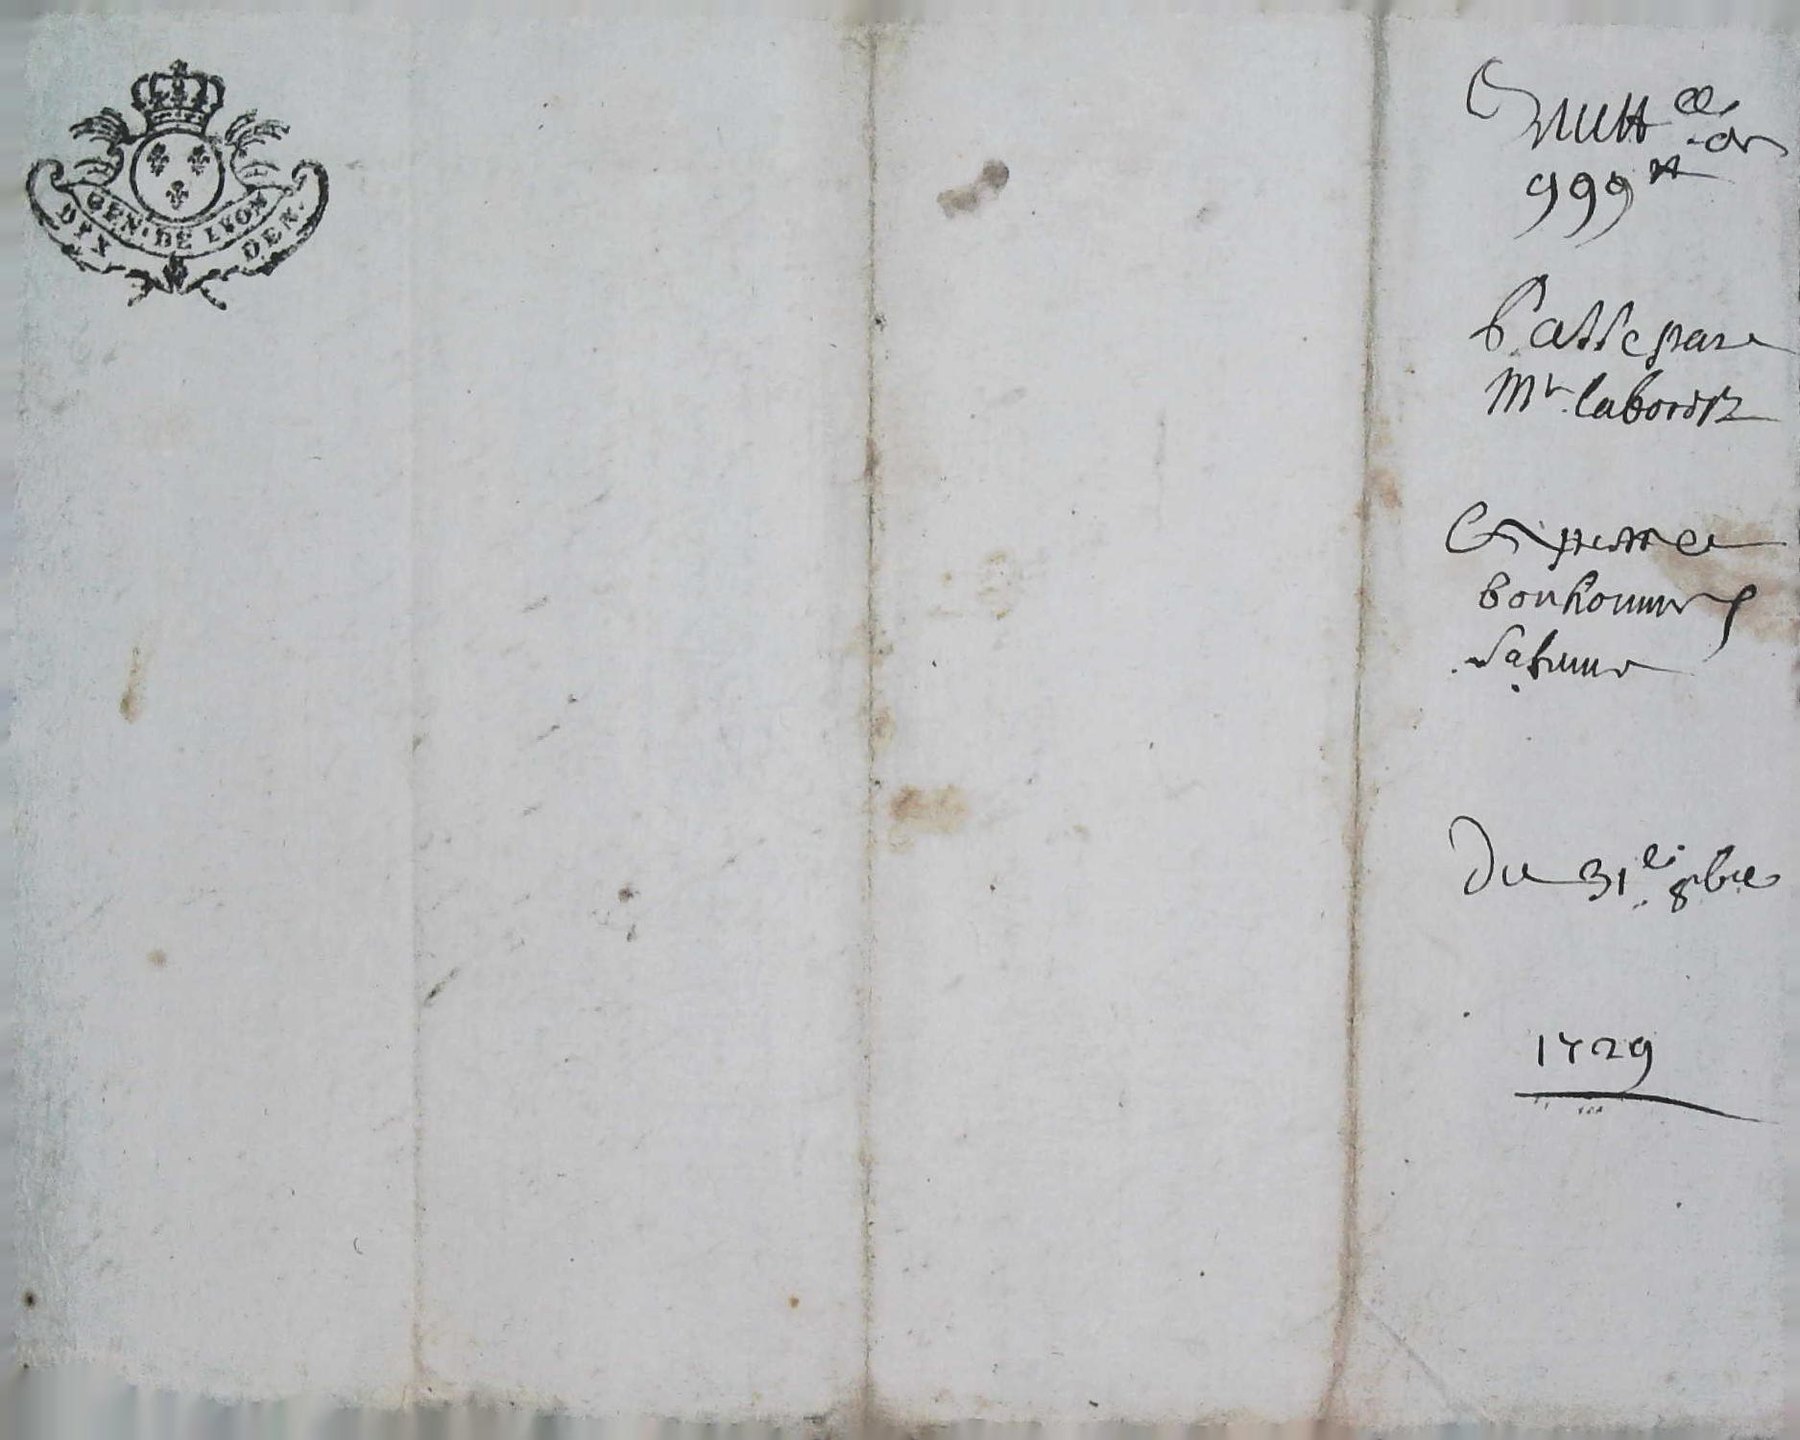 GEN. DE LYON
DIX DEN.
Quitt ce de
999 tt
Passe par
Mr. laborde
bonhomme
Sa femme
Du 31 e 8bre
1729